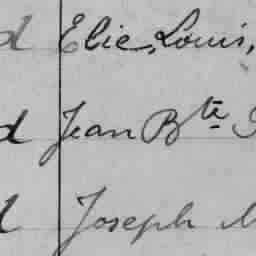 d Elie, Louis,
d Jean Bte
d Joseph M